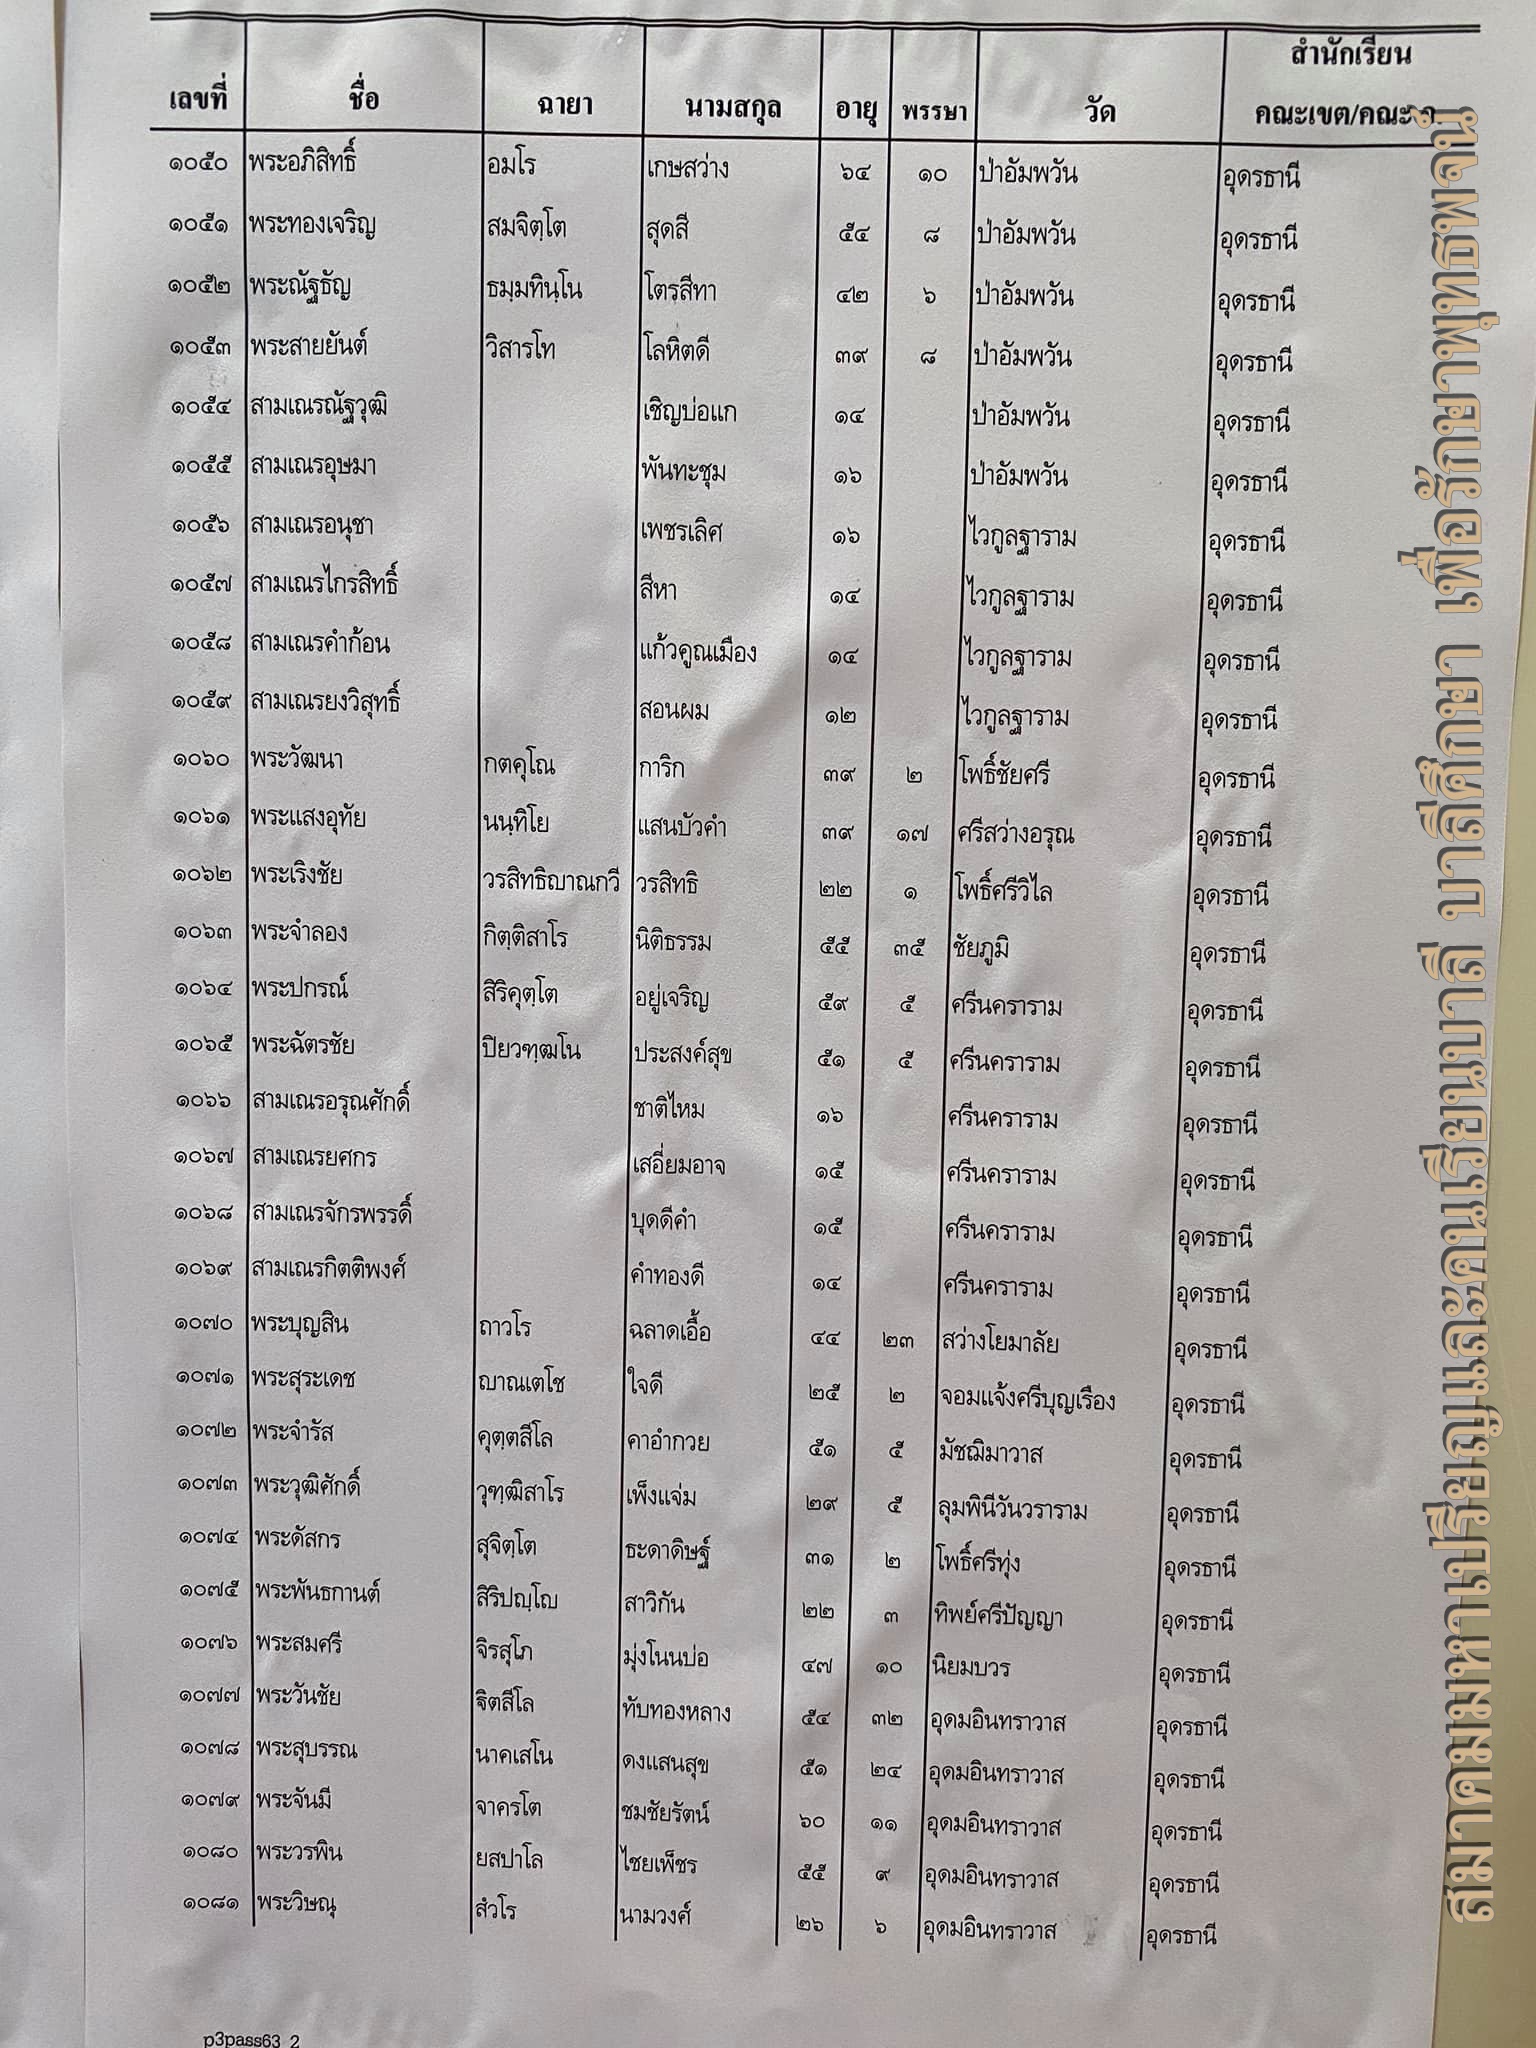 สำนักเรียน
เลขที่ ชื่อ ฉายา นามสกุล อายุ พรรษา วัด คณะเขต/คณะ
๑๐๕๐ พระอภิสิทธิ์ อมโร เกษสว่าง ๖๔ ๑๐ ป่าอัมพวัน อุดรธานี
๑๐๕๑ พระทองเจริญ สมจิตฺโต สุดสี ๕๔ ๘ ป่าอัมพวัน อุดรธานี
๑๐๕๒ พระณัฐธัญ ธมฺมทินฺโน โตรสีทา ๔๒ ๖ ป่าอัมพวัน อุดรธานี
๑๐๕๓ พระสายยันต์ วิสารโท โลหิตดี ๓๙ ๘ ป่าอัมพวัน อุดรธานี
๑๐๕๔ สามเณรณัฐวุฒิ เชิญบ่อแก ๑๔ ป่าอัมพวัน อุดรธานี
๑๐๕๕ สามเณรอุษมา พันทะชุม ๑๖ ป่าอัมพวัน อุดรธานี
๑๐๕๖ สามเณรอนุชา เพชรเลิศ ๑๖ ไวกูลฐาราม อุดรธานี
๑๐๕๗ สามเณรไกรสิทธิ์ สีหา ๑๔ ไวกูลฐาราม อุดรธานี
๑๐๕๘ สามเณรคำก้อน แก้วคูณเมือง ๑๔ ไวกูลฐาราม อุดรธานี
๑๐๕๙ สามเณรยงวิสุทธิ์ สอนผม ๑๒ ไวกูลฐาราม อุดรธานี
๑๐๖๐ พระวัฒนา กตคุโณ การิก ๓๙ ๒ โพธิ์ชัยศรี อุดรธานี
๑๐๖๑ พระแสงอุทัย นนฺทิโย แสนบัวคำ ๓๙ ๑๗ ศรีสว่างอรุณ อุดรธานี
๑๐๖๒ พระเริงชัย วรสิทธิญาณกวี วรสิทธิ ๒๒ ๑ โพธิ์ศรีวิไล อุดรธานี
๑๐๖๓ พระจำลอง กิตฺติสาโร นิติธรรม ๕๕ ๓๕ ชัยภูมิ อุดรธานี
๑๐๖๔ พระปกรณ์ สิริคุตฺโต อยู่เจริญ ๕๙ ๕ ศรีนคราราม อุดรธานี
๑๐๖๕ พระฉัตรชัย ปิยวฑฺฒโน ประสงค์สุข ๕๑ ๕ ศรีนคราราม อุดรธานี
๑๐๖๖ สามเณรอรุณศักดิ์ ชาติไหม ๑๖ ศรีนคราราม อุดรธานี
๑๐๖๗ สามเณรยศกร เสอี่ยมอาจ ๑๕ ศรีนคราราม อุดรธานี
๑๐๖๘ สามเณรจักรพรรดิ์ บุดดีคำ ๑๕ ศรีนคราราม อุดรธานี
๑๐๖๙ สามเณรกิตติพงศ์ คำทองดี ๑๔ ศรีนคราราม อุดรธานี
๑๐๗๐ พระบุญสิน ถาวโร ฉลาดเอื้อ ๔๔ ๒๓ สว่างโยมาลัย อุดรธานี
๑๐๗๑ พระสุระเดช ญาณเตโช ใจดี ๒๕ ๒ จอมแจ้งศรีบุญเรือง อุดรธานี
๑๐๗๒ พระจำรัส คุตฺตสีโล คาอำกวย ๕๑ ๕ มัชฌิมาวาส อุดรธานี
๑๐๗๓ พระวุฒิศักดิ์ วุฑฺฒิสาโร เพ็งแจ่ม ๒๙ ๕ ลุมพินีวันวราราม อุดรธานี
๑๐๗๔ พระดัสกร สุจิตฺโต ธะดาดิษฐ์ ๓๑ ๒ โพธิ์ศรีทุ่ง อุดรธานี
๑๐๗๕ พระพันธกานต์ สิริปญฺโญ สาวิกัน ๒๒ ๓ ทิพย์ศรีปัญญา อุดรธานี
๑๐๗๖ พระสมศรี จิรสุโภ มุ่งโนนบ่อ ๔๗ ๑๐ นิยมบวร อุดรธานี
๑๐๗๗ พระวันชัย จิตสีโล ทับทองหลาง ๕๔ ๓๒ อุดมอินทราวาส อุดรธานี
๑๐๗๘ พระสุบรรณ นาคเสโน ดงแสนสุข ๕๑ ๒๔ อุดมอินทราวาส อุดรธานี
๑๐๗๙ พระจันมี จาครโต ชมชัยรัตน์ ๖๐ ๑๑ อุดมอินทราวาส อุดรธานี
๑๐๘๐ พระวรพิน ยสปาโล ไชยเพ็ชร ๕๕ ๙ อุดมอินทราวาส อุดรธานี
๑๐๘๑ พระวิษณุ สํวโร นามวงศ์ ๒๖ ๖ อุดมอินทราวาส อุดรธานี
p3pass63_2
สมาคมมหาเปรียญและคนเรียนบาลี บาลีศึกษา เพื่อรักษาพุทธพจน์